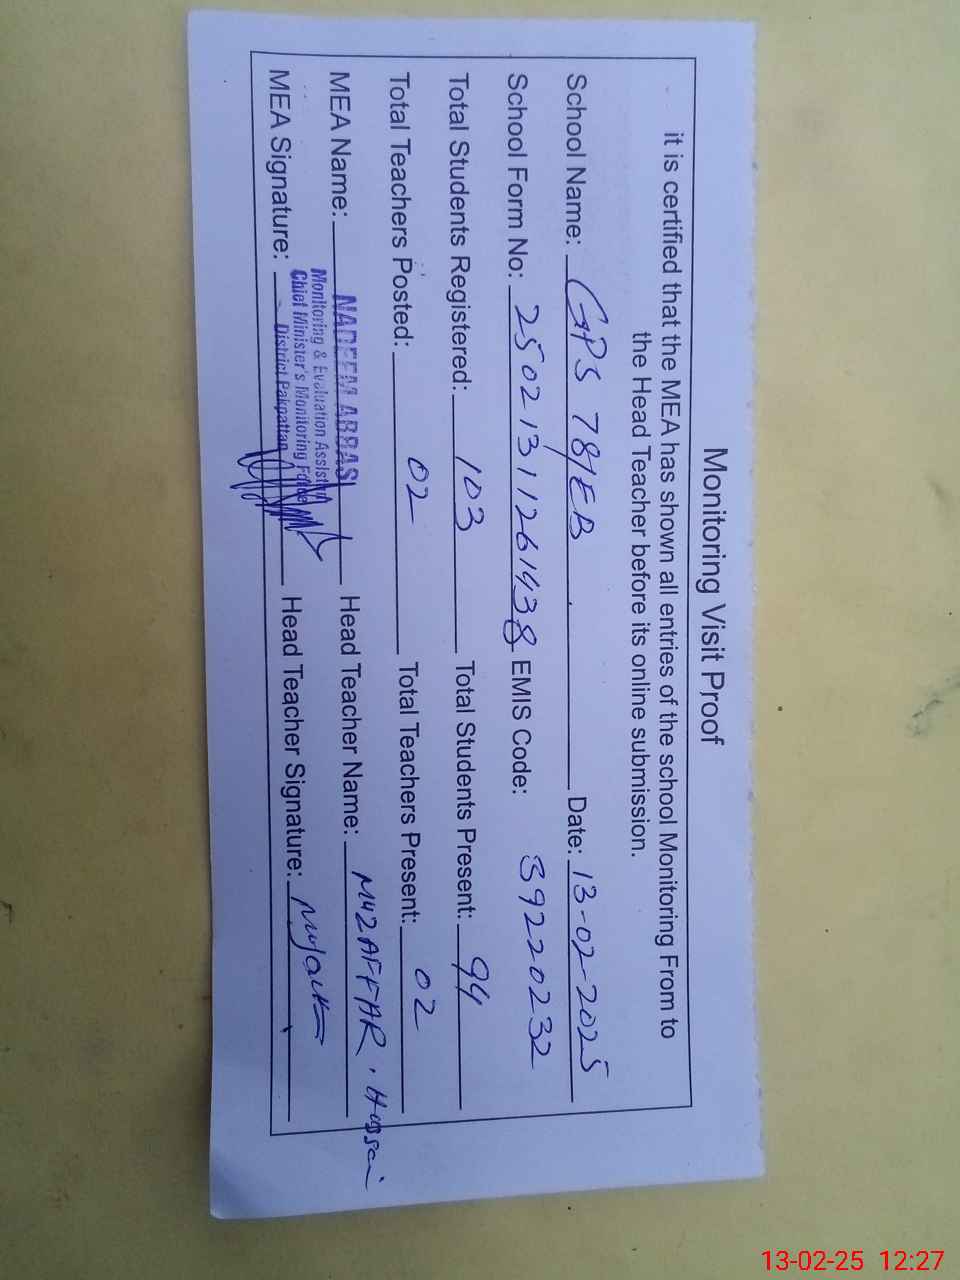 Monitoring Visit Proof
it is certified that the MEA has shown all entries of the school Monitoring From to
the Head Teacher before its online submission.
School Name: GPS 78/EB Date: 13-02-2025
School Form No: 25021311261438 EMIS Code: 39220232
Total Students Registered: 103 Total Students Present: 94
Total Teachers Posted: 02 Total Teachers Present: 02
MEA Name: NADEEM ABBAS Head Teacher Name: MUZAFFAR. Hussai
Monitoring & Evaluation Assistan
Chief Minister's Monitoring Force
District Pakpattan
MEA Signature: Head Teacher Signature:
13-02-25 12:27